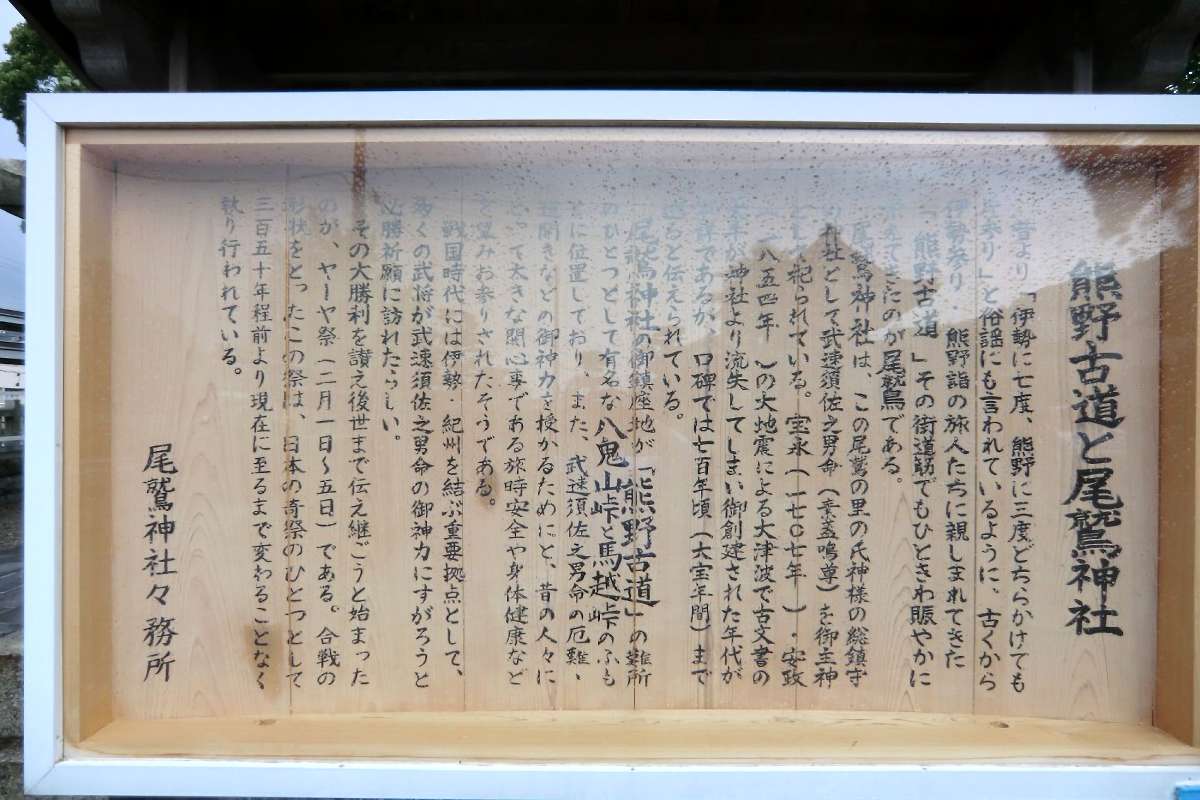 熊野古道と尾鷲神社
昔より「伊勢に七度、熊野に三度どちらかけても
片参り」と俗謡にも言われているように、古くから
伊勢参り 熊野詣の旅人たちに親しまれてきた
「熊野古道」その街道筋でもひときわ賑やかに
きたのが尾鷲である。
尾鷲神社は、この尾鷲の里の氏神様の総鎮守
の社として武速須佐之男命(素盞嗚尊)を御主神
として祀られている。宝永(一七〇七年)・安政
(一八五四年)の大地震による大津波で古文書の
年が神社より流失してしまい御創建された年代が
であるが、口碑では七百年頃(大宝年間)まで
ると伝えられている。
尾鷲神社の御鎮座地が「熊野古道」の難所
のひとつとして有名な八鬼山峠と馬越峠のふも
とに位置しており、また、武速須佐之男命の厄難、
開きなどの御神力を授かるためにと、昔の人々に
とって大きな関心事である旅時安全や身体健康など
を望みお参りされたそうである。
戦国時代には伊勢・紀州を結ぶ重要拠点として、
多くの武将が武速須佐之男命の御神力にすがろうと
必勝祈願に訪れたらしい。
その大勝利を讃え後世まで伝え継ごうと始まった
のが、ヤーヤ祭(二月一日〜五日)である。合戦の
形状をとったこの祭は、日本の奇祭のひとつとして
三百五十年程前より現在に至るまで変わることなく
執り行われている。
尾鷲神社々務所